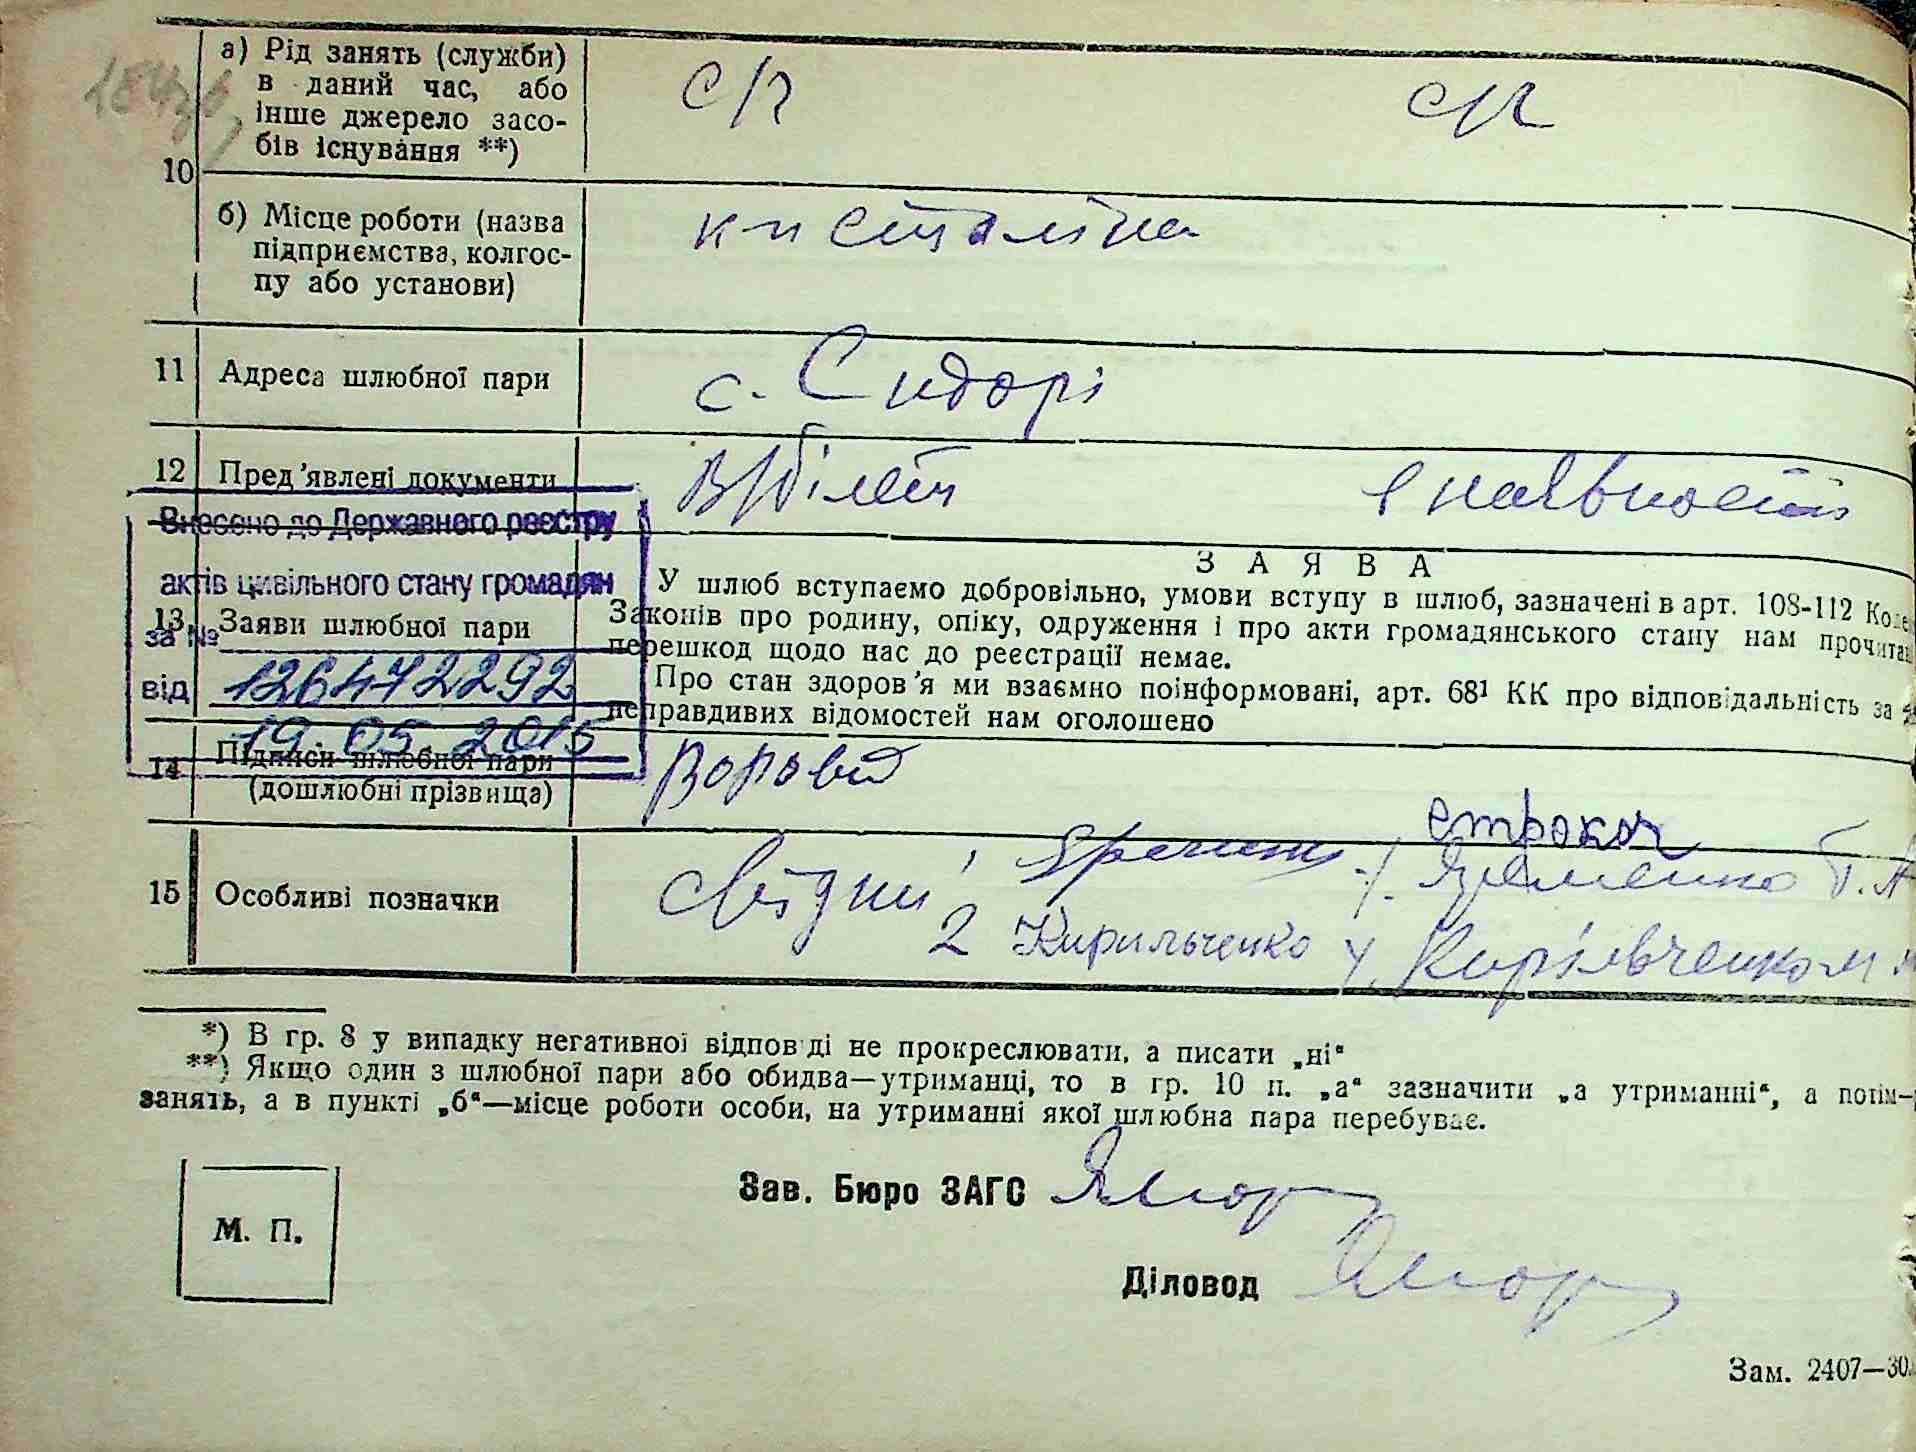 а) Рід занять (служби)
в даний час, або
інше джерело засо-
бів існування **)
с/г
с/г
10
б) Місце роботи (назва
підприємства, колгос-
пу або установи)
к-п Сталіна
11 Адреса шлюбної пари
с. Сидорі
12 Пред'явлені документи
В/білет
в наявності
Внесено до Державного реєстру
актів цивільного стану громадян
за №
126472292
від
19.05.2015
13 Заяви шлюбної пари
ЗАЯВА
У шлюб вступаємо добровільно, умови вступу в шлюб, зазначені в арт. 108-112 Коде
Законів про родину, опіку, одруження і про акти громадянського стану нам прочита
перешкод щодо нас до реєстрації немає.
Про стан здоров'я ми взаємно поінформовані, арт. 68¹ КК про відповідальність за
неправдивих відомостей нам оголошено
14 Підписи шлюбної пари
(дошлюбні прізвища)
15 Особливі позначки
Свідки
1. Яременко
2 Кирильченко
*) В гр. 8 у випадку негативної відповіді не прокреслювати, а писати „ні“
**) Якщо один з шлюбної пари або обидва—утриманці, то в гр. 10 п. „а“ зазначити „а утриманні“, а потім—
занять, а в пункті „б“—місце роботи особи, на утриманні якої шлюбна пара перебуває.
М. П.
Зав. Бюро ЗАГС
Діловод
Зам. 2407—30